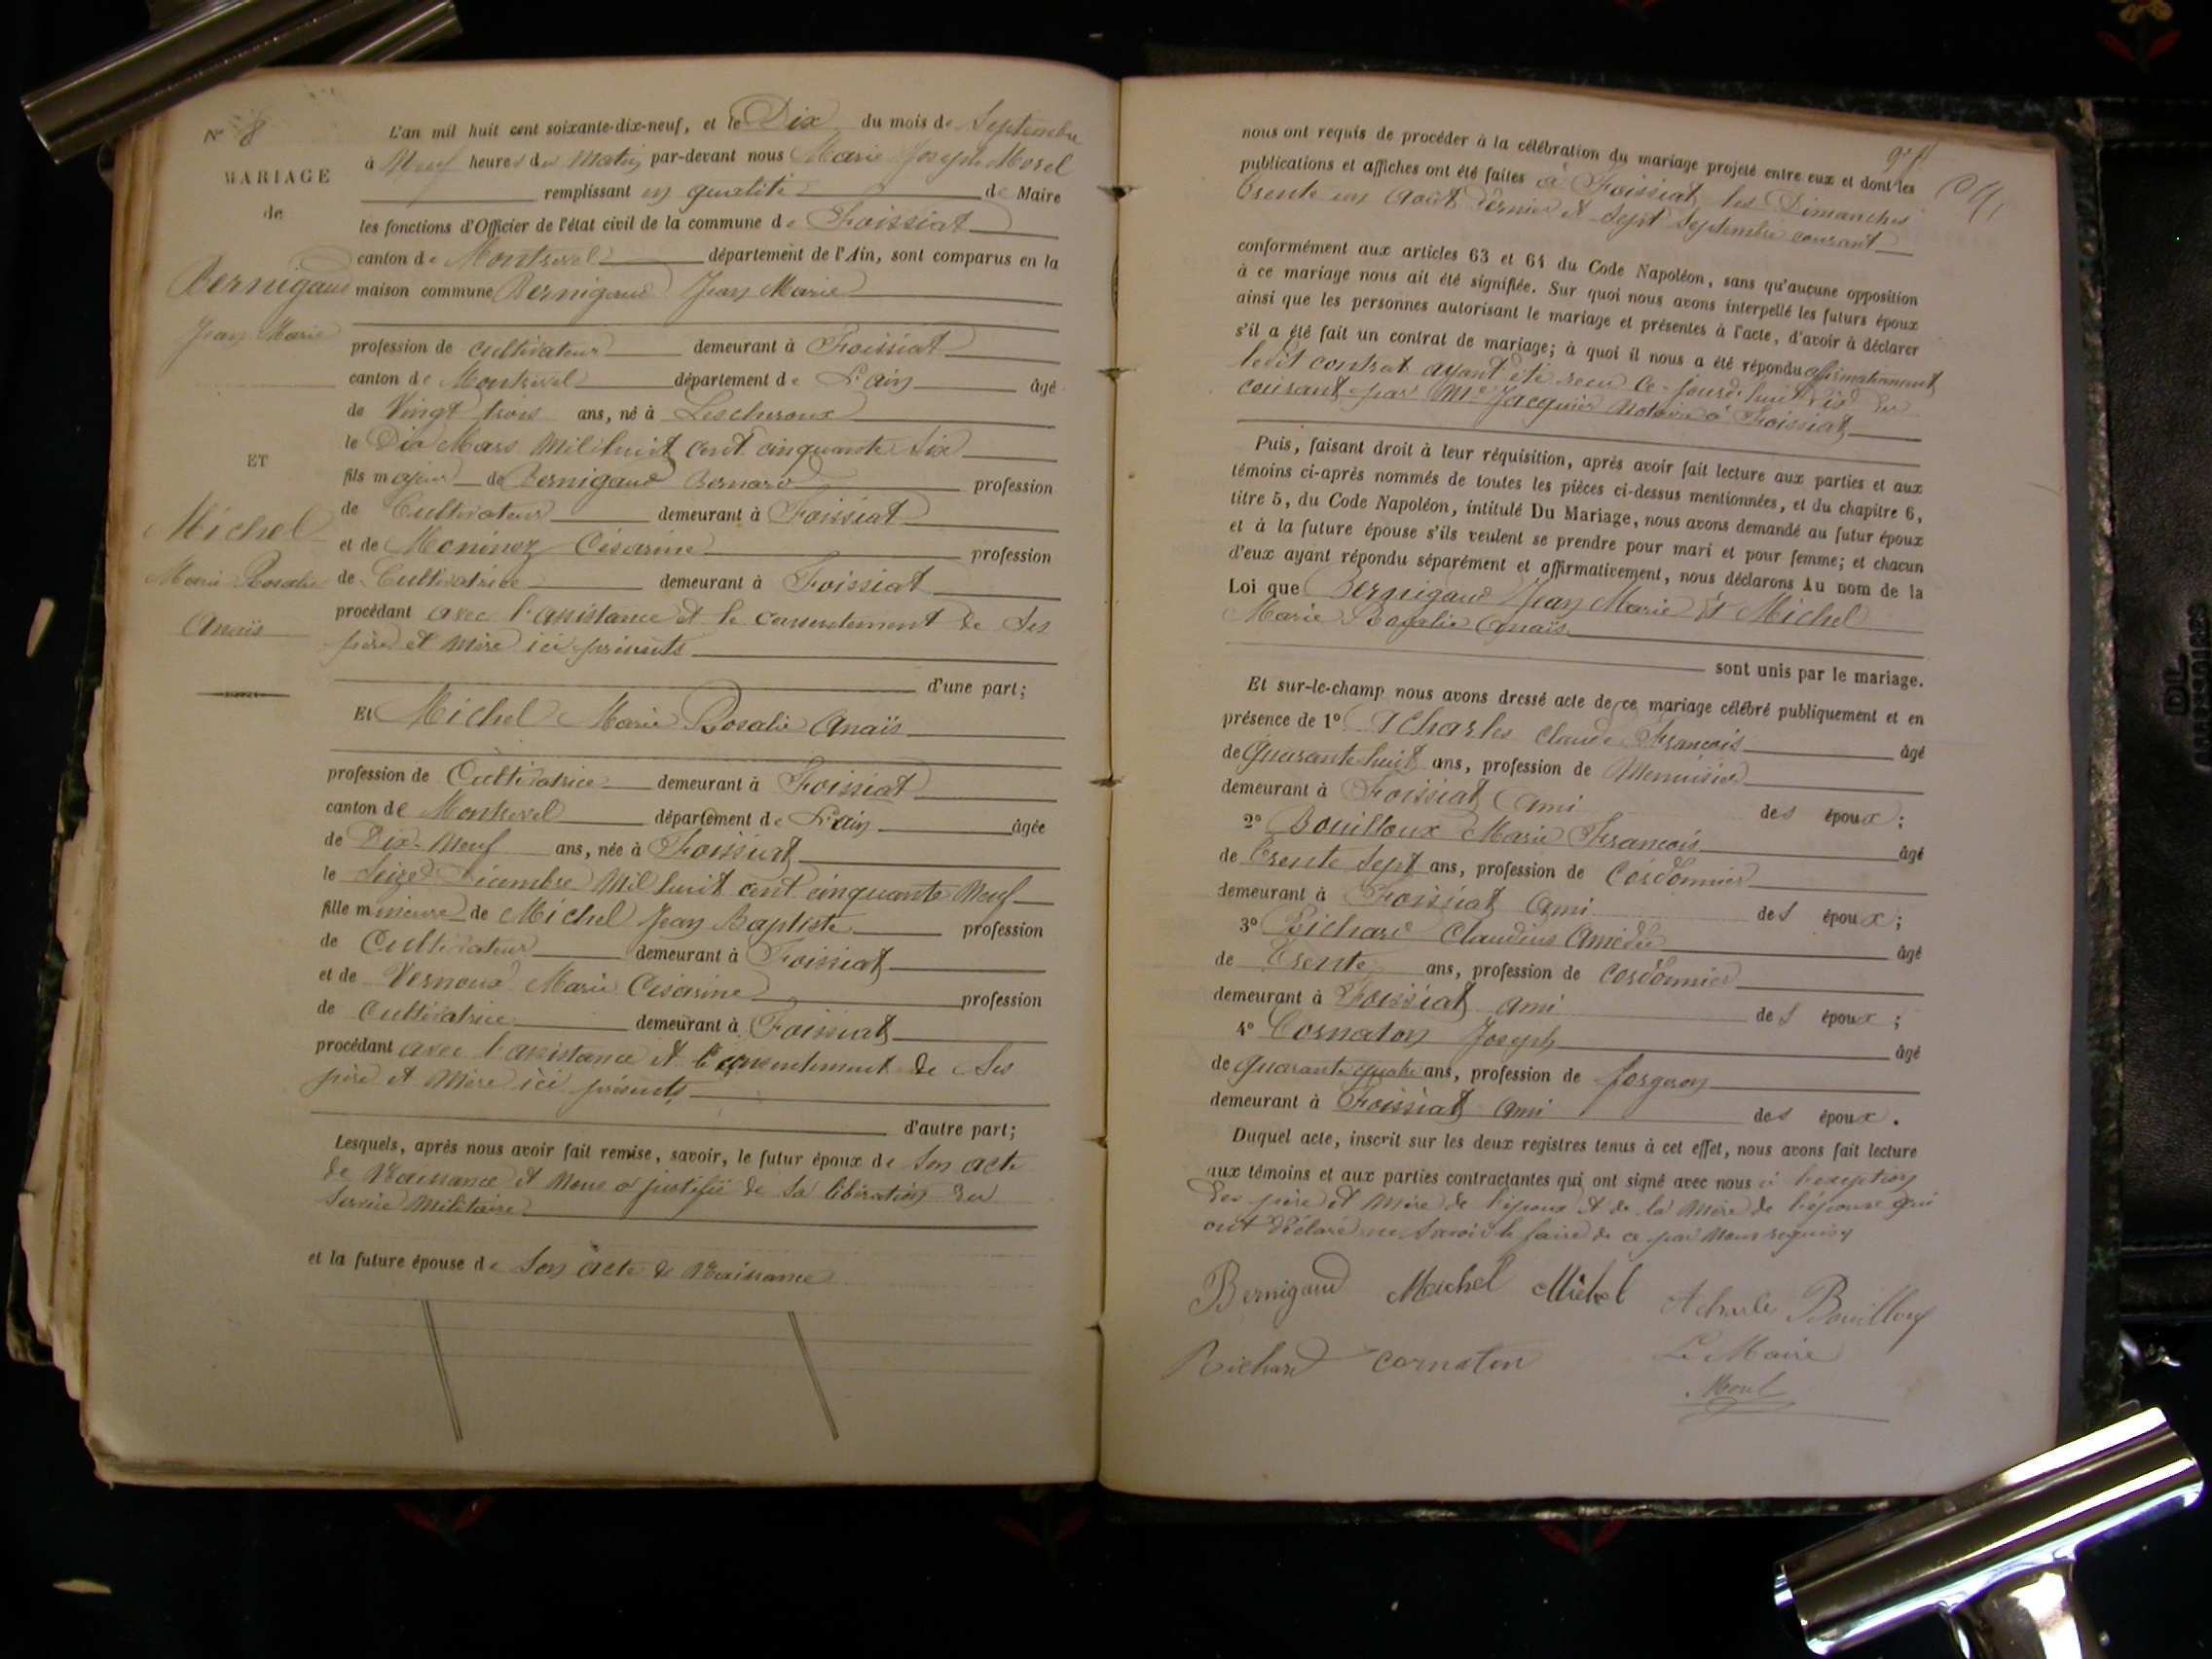 N° 8
MARIAGE
de
Bernigaud
Jean Marie
ET
Michel
Marie Rosalie
Anaïs
L'an mil huit cent soixante-dix-neuf, et le Dix du mois de Septembre
à Neuf heures du Matin par-devant nous Marie Joseph Morel
remplissant en qualité de Maire
les fonctions d'Officier de l'état civil de la commune de Foissiat
canton de Montrevel département de l'Ain, sont comparus en la
maison commune Bernigaud Jean Marie
profession de cultivateur demeurant à Foissiat
canton de Montrevel département de L'ain âgé
de Vingt trois ans, né à Lescheroux
le Dix Mars Mil huit cent cinquante Six
fils majeur de Bernigaud Bernard profession
de Cultivateur demeurant à Foissiat
et de Moninez Césarine profession
de Cultivatrice demeurant à Foissiat
procédant avec l'assistance et le consentement de Ses
père et Mère ici présents
d'une part;
Et Michel Marie Rosalie Anaïs
profession de Cultivatrice demeurant à Foissiat
canton de Montrevel département de L'ain âgée
de Dix-Neuf ans, née à Foissiat
le Seize Décembre Mil huit cent cinquante Neuf
fille mineure de Michel Jean Baptiste profession
de Cultivateur demeurant à Foissiat
et de Vernoux Marie Césarine profession
de Cultivatrice demeurant à Foissiat
procédant avec l'assistance et le consentement de Ses
père et Mère ici présents
d'autre part;
Lesquels, après nous avoir fait remise, savoir, le futur époux de Son acte
de Naissance et Nous a justifié de Sa libération du
Service Militaire
et la future épouse de Son acte de Naissance
nous ont requis de procéder à la célébration du mariage projeté entre eux et dont les
publications et affiches ont été faites à Foissiat les Dimanches
Trente un Août dernier et Sept Septembre courant
conformément aux articles 63 et 64 du Code Napoléon, sans qu'aucune opposition
à ce mariage nous ait été signifiée. Sur quoi nous avons interpellé les futurs époux
ainsi que les personnes autorisant le mariage et présentes à l'acte, d'avoir à déclarer
s'il a été fait un contrat de mariage; à quoi il nous a été répondu affirmativement
ledit contrat ayant été reçu Ce-jourd'huit Dix du
courant par Me Jacquier Notaire à Foissiat
Puis, faisant droit à leur réquisition, après avoir fait lecture aux parties et aux
témoins ci-après nommés de toutes les pièces ci-dessus mentionnées, et du chapitre 6,
titre 5, du Code Napoléon, intitulé Du Mariage, nous avons demandé au futur époux
et à la future épouse s'ils veulent se prendre pour mari et pour femme; et chacun
d'eux ayant répondu séparément et affirmativement, nous déclarons Au nom de la
Loi que Bernigaud Jean Marie Et Michel
Marie Rosalie Anaïs
sont unis par le mariage.
Et sur-le-champ nous avons dressé acte de ce mariage célébré publiquement et en
présence de 1° Acharles Claude François âgé
de Quarante huit ans, profession de Menuisier
demeurant à Foissiat Ami des époux;
2° Bouilloux Marie François âgé
de Trente Sept ans, profession de Cordonnier
demeurant à Foissiat Ami des époux;
3° Richard Claudius Amédée âgé
de Trente ans, profession de Cordonnier
demeurant à Foissiat ami des époux;
4° Cornaton Joseph âgé
de Quarante quatre ans, profession de forgeron
demeurant à Foissiat ami des époux.
Duquel acte, inscrit sur les deux registres tenus à cet effet, nous avons fait lecture
aux témoins et aux parties contractantes qui ont signé avec nous à l'exception
des père et Mère de l'époux et de la Mère de l'épouse qui
ont déclaré ne Savoir le faire de ce par Nous requis
Bernigaud Michel Michel Acharles Bouilloux
Richard cornaton Le Maire
Morel